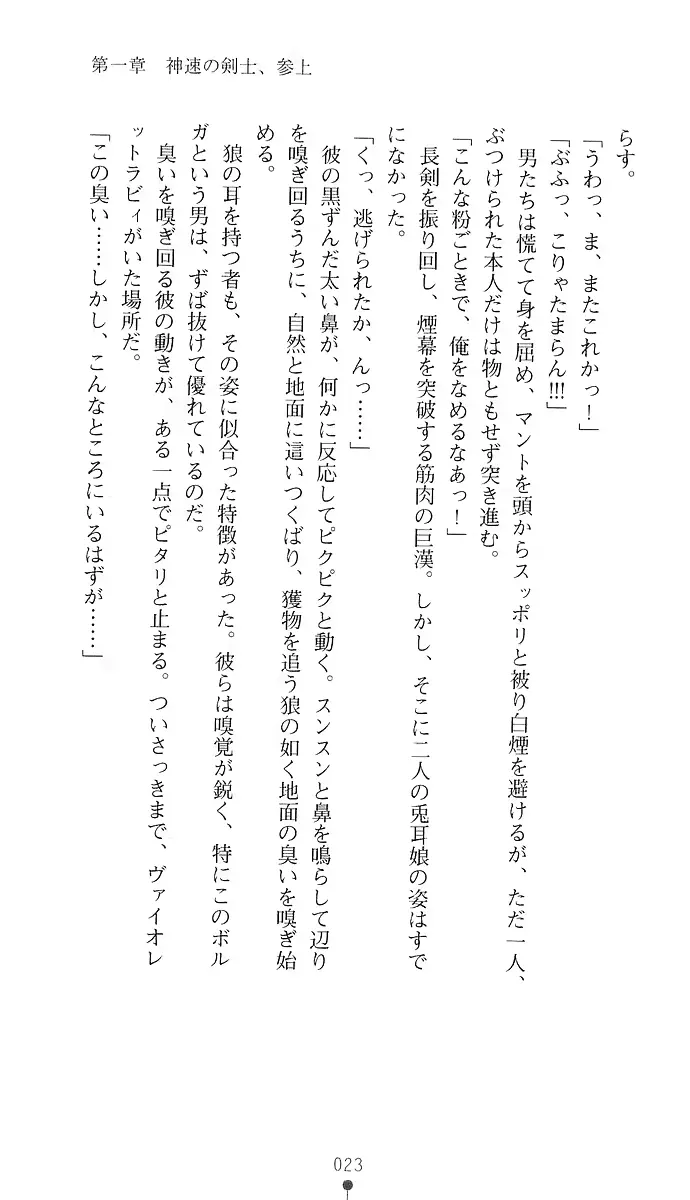 第一章　神速の剣士、参上
らす。
「うわっ、ま、またこれかっ！」
「ぶふっ、こりゃたまらん!!!」
　男たちは慌てて身を屈め、マントを頭からスッポリと被り白煙を避けるが、ただ一人、
ぶつけられた本人だけは物ともせず突き進む。
「こんな粉ごときで、俺をなめるなあっ！」
　長剣を振り回し、煙幕を突破する筋肉の巨漢。しかし、そこに二人の兎耳娘の姿はすで
になかった。
「くっ、逃げられたか、んっ……」
　彼の黒ずんだ太い鼻が、何かに反応してピクピクと動く。スンスンと鼻を鳴らして辺り
を嗅ぎ回るうちに、自然と地面に這いつくばり、獲物を追う狼の如く地面の臭いを嗅ぎ始
める。
　狼の耳を持つ者も、その姿に似合った特徴があった。彼らは嗅覚が鋭く、特にこのボル
ガという男は、ずば抜けて優れているのだ。
　臭いを嗅ぎ回る彼の動きが、ある一点でピタリと止まる。ついさっきまで、ヴァイオレ
ットラビィがいた場所だ。
「この臭い……しかし、こんなところにいるはずが……」
023